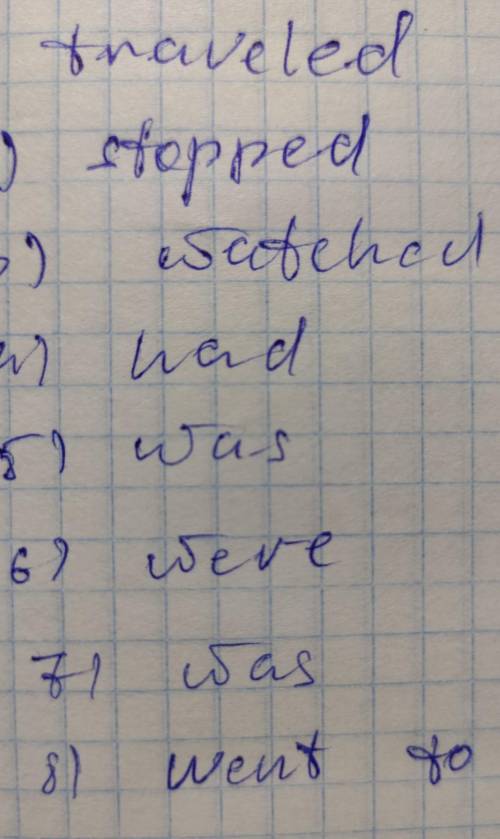 traveled
) stopped
3) watched
4) had
5) was
6) were
7) was
8) went to